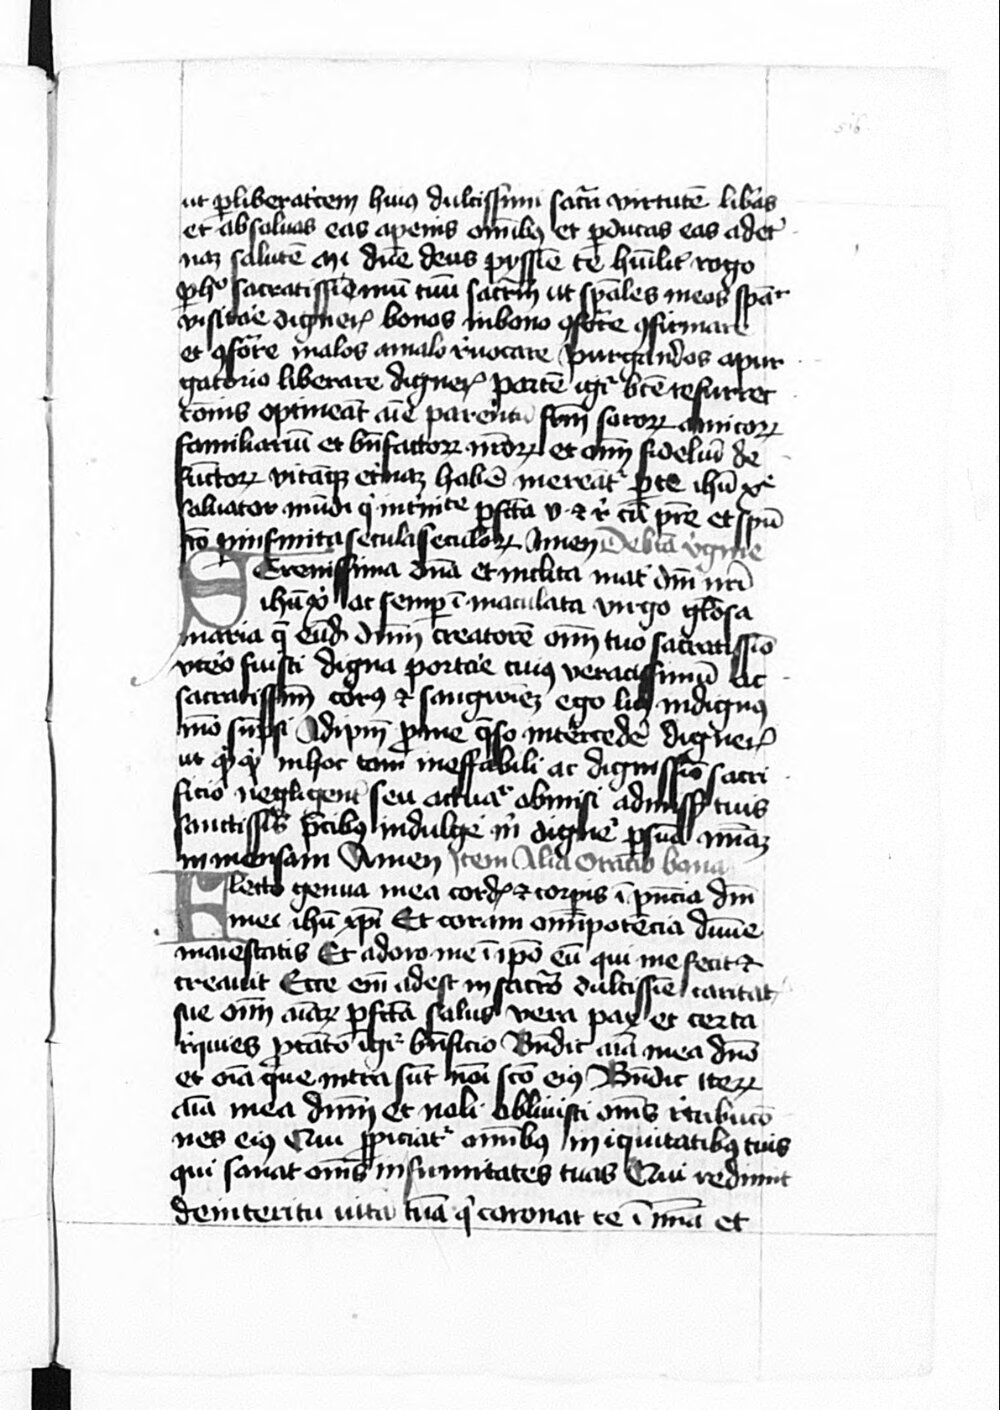 ut ꝑ liberatc̄em huiꝰ dulcissimi sacrī virtutē libas
et absoluas eas a penis om̄ibꝫ et ꝑducas eas ad et̄
naꝫ salutē mi dn̄e deus pijssīe te hūilit̄ rogo
ꝑ hoc sacratissimū tuū sacrm̄ ut spāles meos
visitar̄e digneris bonos in bono ꝯfirmare
malos a malo r̄uocare purgandos a pur
gatorio liberare digneris partē igr̄ btē resurrec
tōnis optineāt aīe parentū frm̄ sororꝝ amicorꝝ
familiariū et bn̄factorꝝ nr̄orꝝ et om̄ fideliū de
functorꝝ vitāqꝫ et̄naꝫ habē mereāt̄ ꝑ te ihū xp̄e
saluator mūdi qͥ in t̄nitate ꝑfcta v ⁊ r̄ cū pr̄e et spū
sco ꝑ infinita secula seculorꝝ Amen De bta v̄gine
Serenissima dn̄a et inclita mat̄ dn̄i nr̄i
ihū xp̄i ac semꝑ īmaculata virgo gl̄osa
maria q̄ eūd dn̄m creatorē om̄ tuo sacratissīo
vtero fuisti digna portar̄e cuiꝰ veracissimū ac
sacratissim̄ corpꝰ ⁊ sangwinēꝫ ego lꝫ indignꝰ
mō sūpsi Ad ip̄m ꝑ me q̄so int̄cedē digneris
ut qͥcqͥd in hoc tam ineffabili ac dignissīo sacri
ficio negligent̄ seu obmisi admisi tuis
sanctissīs p̄cibꝫ indulgē m̄ digne ꝑ suā mīaꝫ
inmensam Amen Item Alia Oracio bona
Flecto genua mea cordis ⁊ corꝑis ī pn̄cia dn̄i
mei ihū xp̄i Et coram om̄ipotencia diuine
maiestatis Et adoro me ī ip̄o eū qui me fecit ⁊
creauit Ecce em̄ adest in sacro dulcissīe caritat
sue om̄ aīarꝝ ꝑfcta salus vera pax et certa
r̄quies ꝑtato igr̄ bn̄ficio Bn̄dic aīa mea dn̄o
et oīa que intra sūt noī sco eiꝰ Bn̄dic iterꝝ
aīa mea dn̄m et noli obliuisci om̄s r̄tribucō
nes eiꝰ Qui ꝓpiciat̄ om̄ibꝫ iniquitatibꝫ tuis
qui sanat om̄s infirmitates tuas Qui redimit
de interitu vitā tuā qͥ coronat te ī mīa et